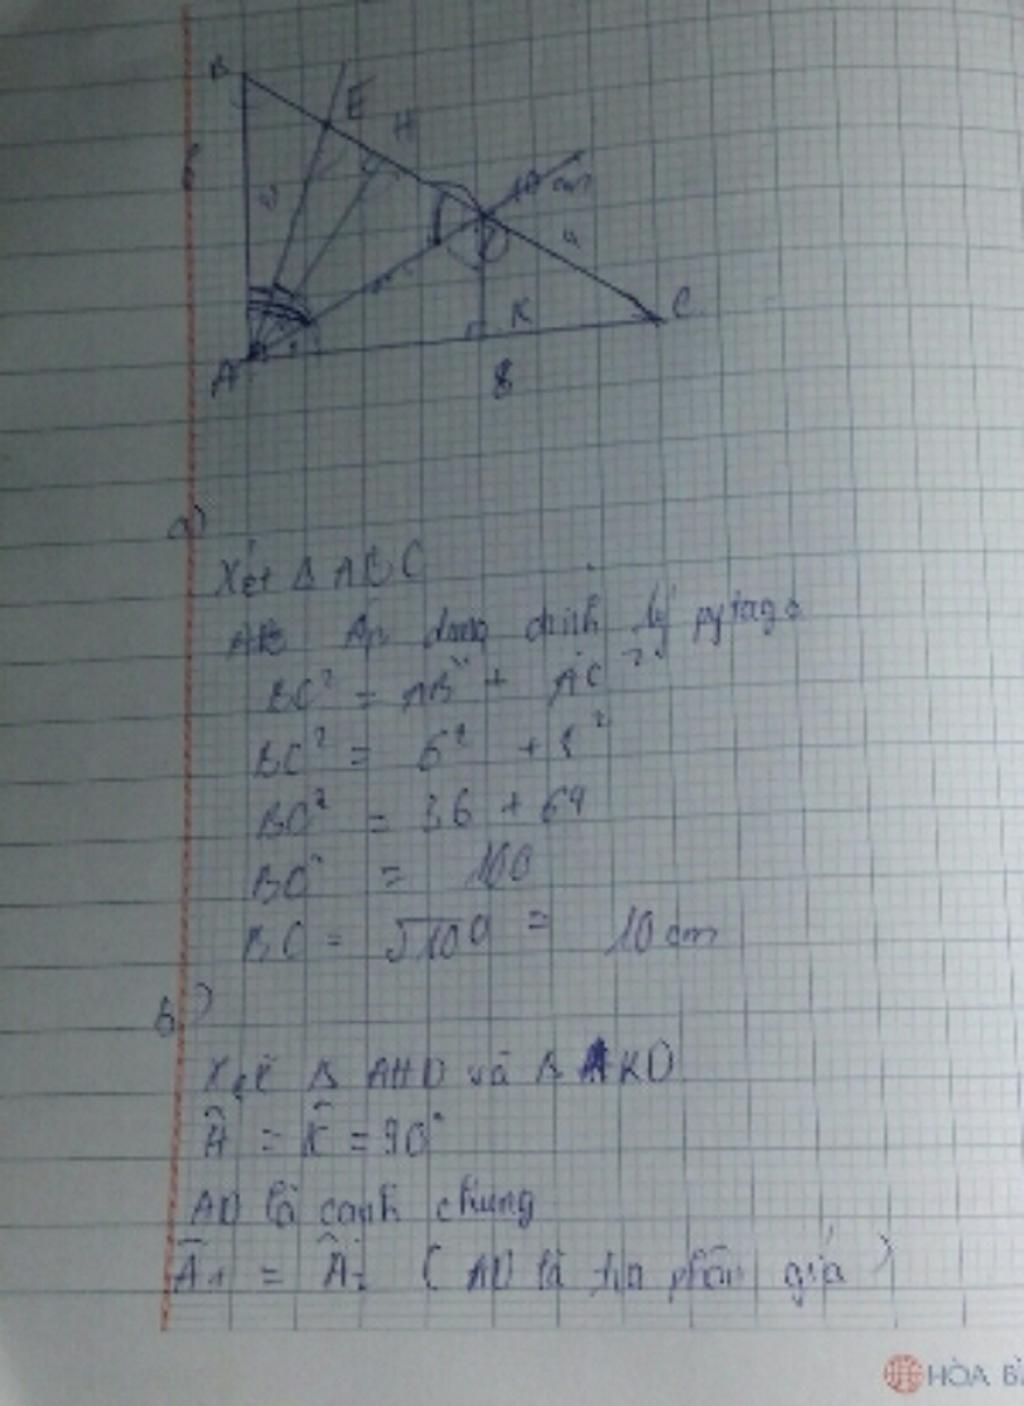 B
E
H
6
10 cm
K
C
A
8
a)
Xét Δ ABC
AB Áp dụng định lý pytago
BC² = AB² + AC²
BC² = 6² + 8²
BC² = 36 + 64
BC² = 100
BC = √100 = 10 cm
b)
Xét Δ AHD và Δ AKD
Ĥ = K̂ = 90°
AD là cạnh chung
Â₁ = Â₂ ( AD là tia phân giá )
HÒA BÌ